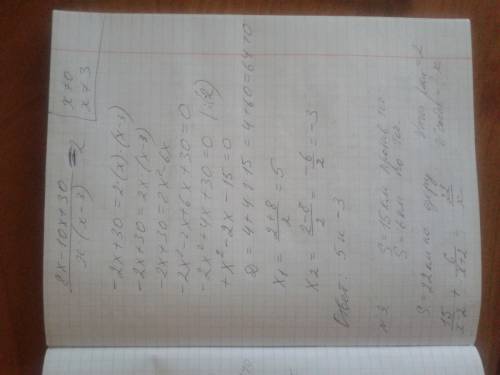 8x-10x+30 / x(x-3) = 2 x≠0
x≠3
-2x+30=2·(x)·(x-3)
-2x+30=2x(x-3)
-2x+30=2x²-6x
-2x²-2x+6x+30=0
-2x²-4x+30=0 (:2)
+x²-2x-15=0
D=4+4·15=4+60=64>0
x1= 2+8 / 2 =5
x2= 2-8 / 2 = -6 / 2 =-3
Ответ: 5 и -3
N3 S=15км против теч
S=6км по теч
S=22км по озеру Vтеч=2
15 / x-2 + 6 / x+2 = 22 / x x